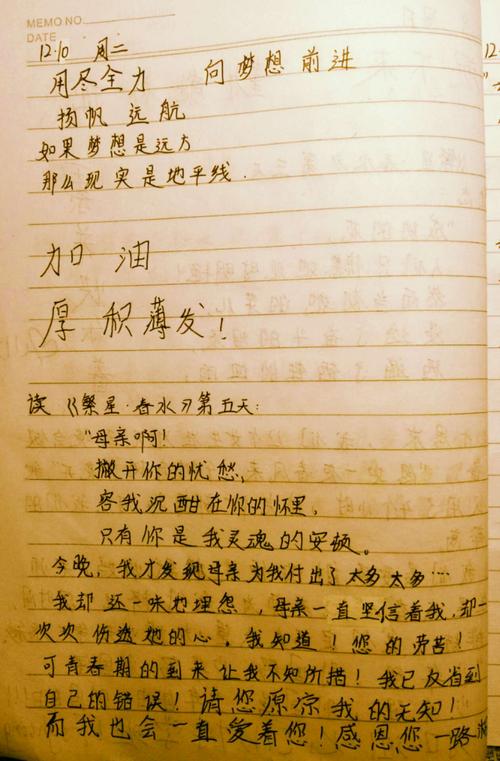 MEMO NO.
DATE
12.10 周二
用尽全力 向梦想前进
扬帆 远航
如果梦想是远方
那么现实是地平线.
加油
厚积薄发!
读《繁星·春水》第五天:
"母亲啊!
撇开你的忧愁,
容我沉酣在你的怀里,
只有你是我灵魂的安顿。
今晚,我才发现母亲为我付出了太多太多…
我却还一味地埋怨,母亲一直坚信着我,却一
次次伤透她的心。我知道!您的劳苦!
可青春期的到来让我不知所措!我已反省到
自己的错误!请您原凉我的无知!
而我也会一直爱着您!感恩您一路